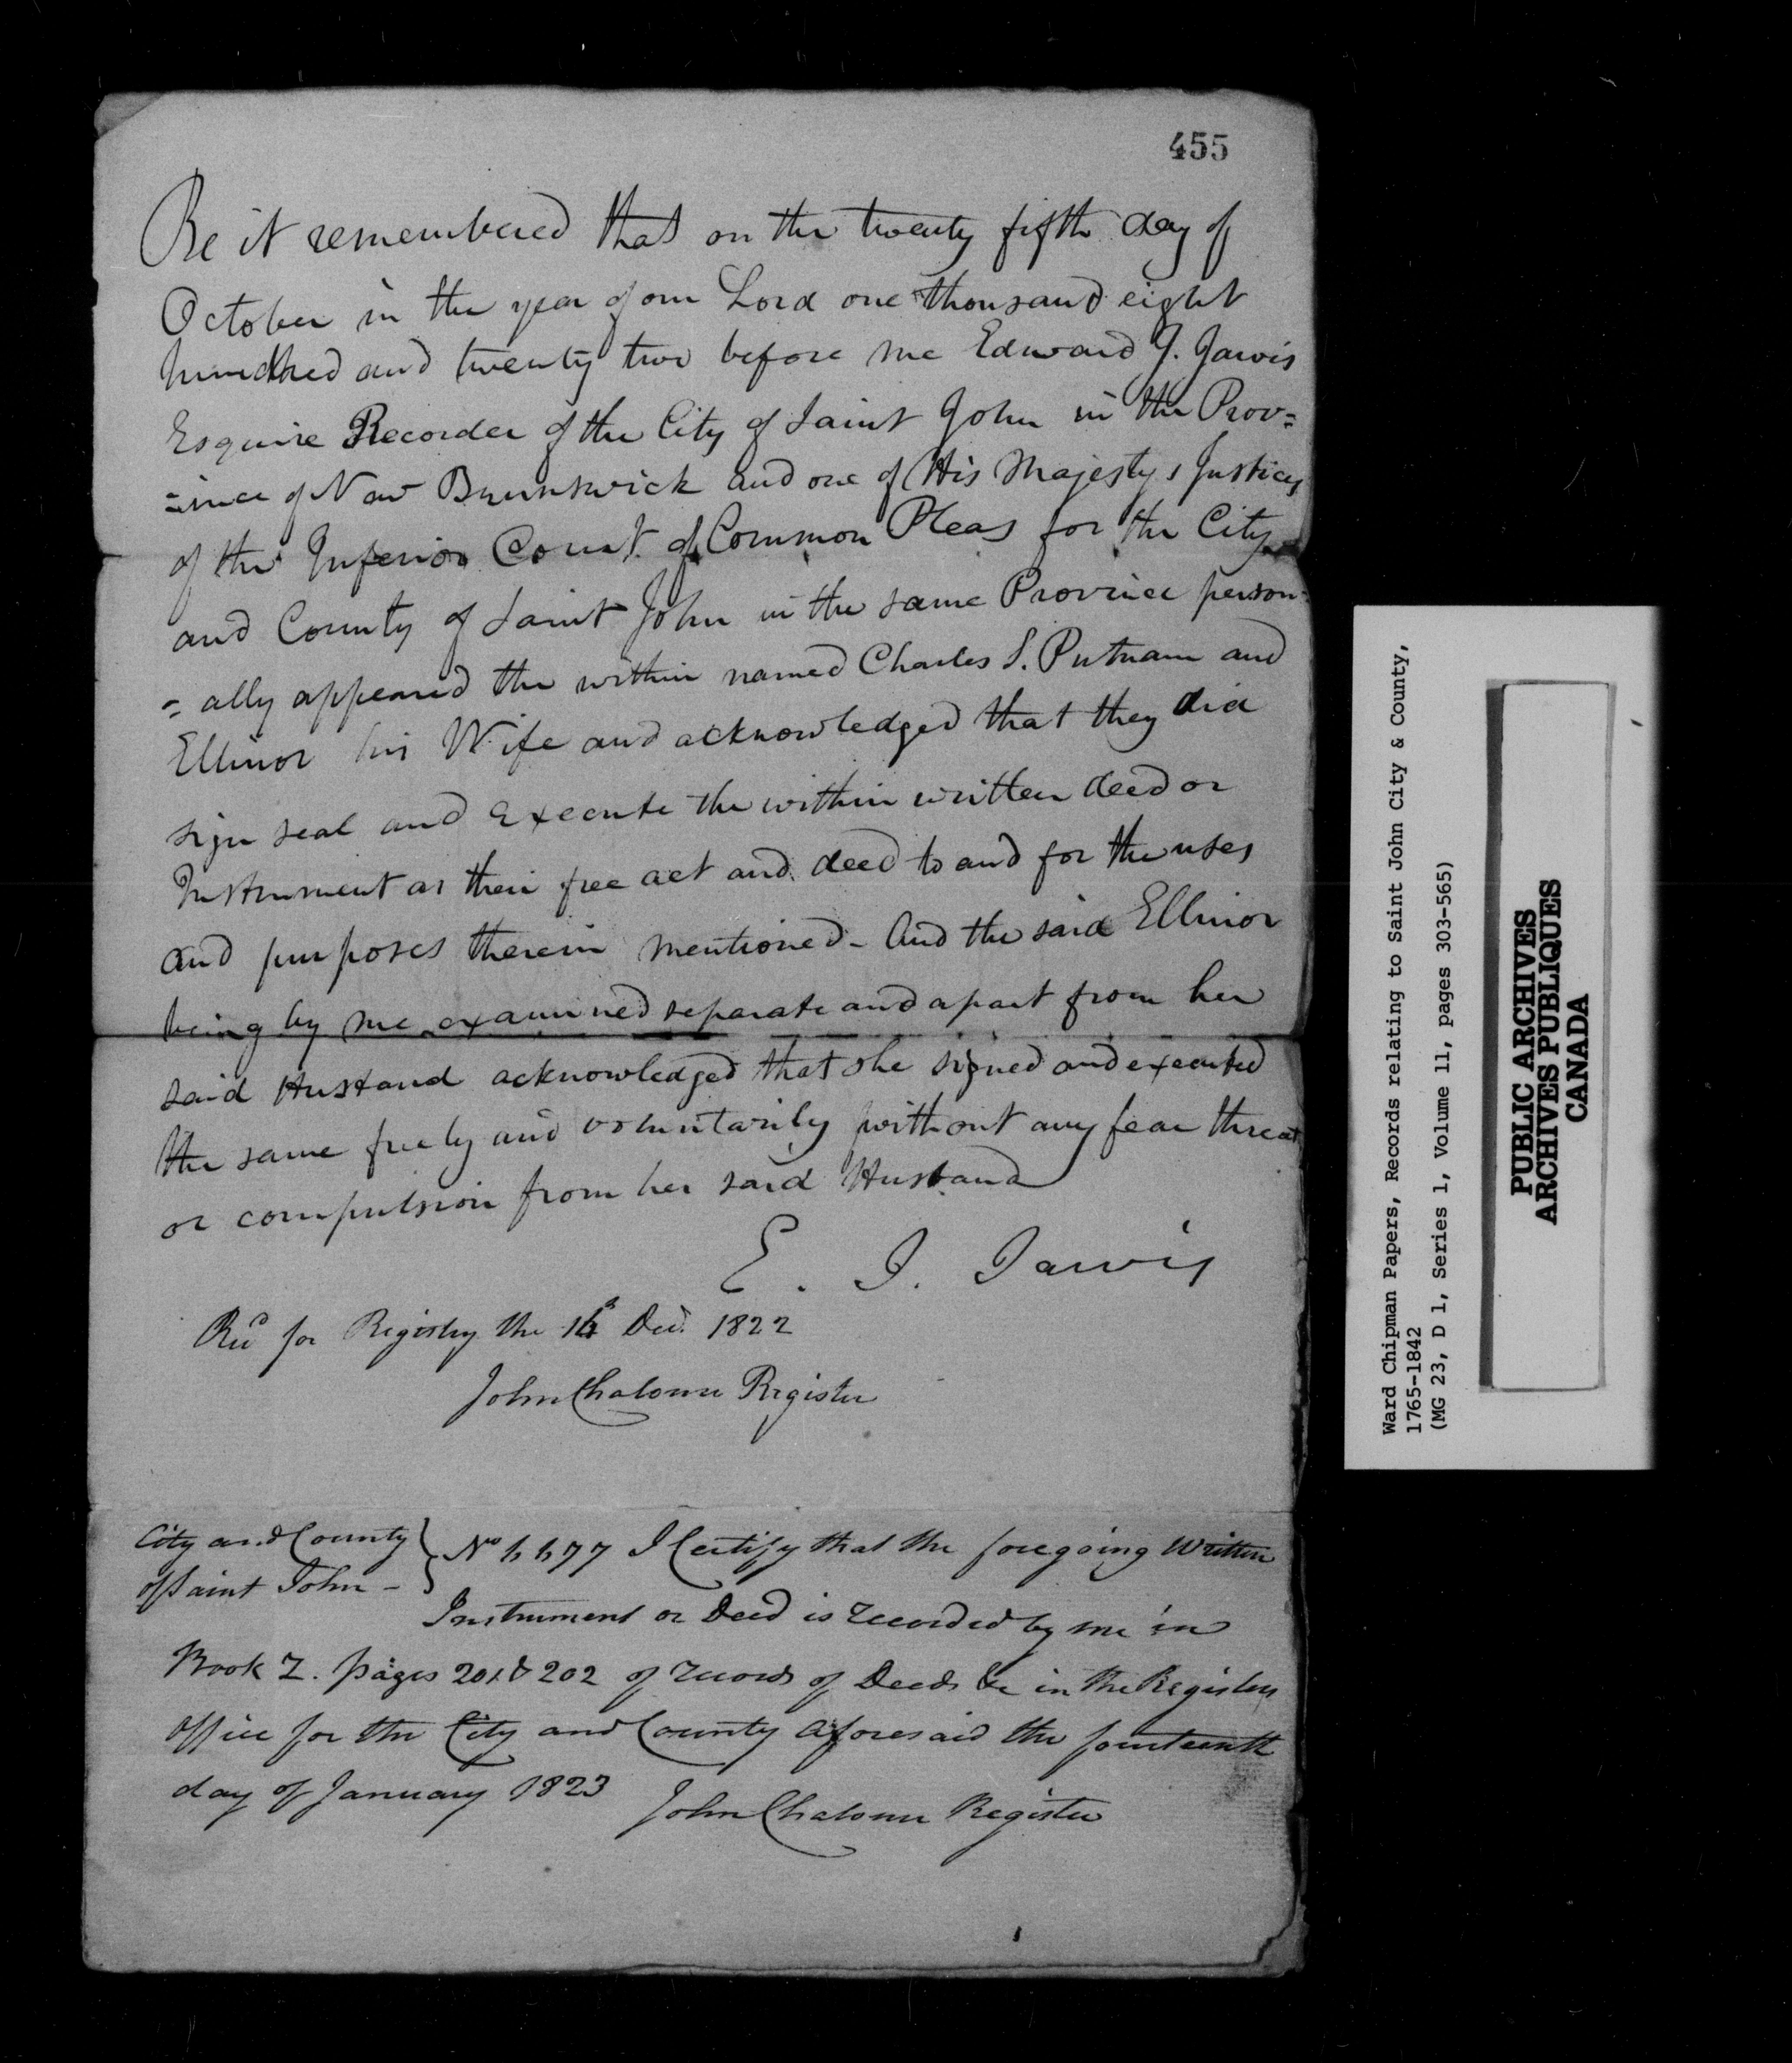 455
Be it remembered that on the twenty fifth day of
October in the year of our Lord one thousand eight
hundred and twenty two before me Edward J. Jarvis
Esquire Recorder of the City of Saint John in the Prov=
=ince of New Brunswick and one of His Majesty's Justices
of the Inferior Court of Common Pleas for the City
and County of Saint John in the same Province person=
=ally appeared the within named Charles S. Putnam and
Ellinor his Wife and acknowledged that they did
sign seal and execute the within written deed or
Instrument as their free act and deed to and for the uses
and purposes therein mentioned - And the said Ellinor
being by me examined separate and apart from her
said Husband acknowledged that she signed and executed
the same freely and voluntarily without any fear threat
or compulsion from her said Husband
E. J. Jarvis
Recd for Registry the Decr. 1822
John Chaloner Register
City and County } No 4477 I Certify that the foregoing Written
of Saint John -
Instrument or Deed is recorded by me in
Book Z. pages 201 & 202 of records of Deeds &c in the Registers
office for the City and County aforesaid the fourteenth
day of January 1823 John Chaloner Register
Ward Chipman Papers, Records relating to Saint John City & County,
1765-1842
(MG 23, D 1, Series 1, Volume 11, pages 303-565)
PUBLIC ARCHIVES
ARCHIVES PUBLIQUES
CANADA